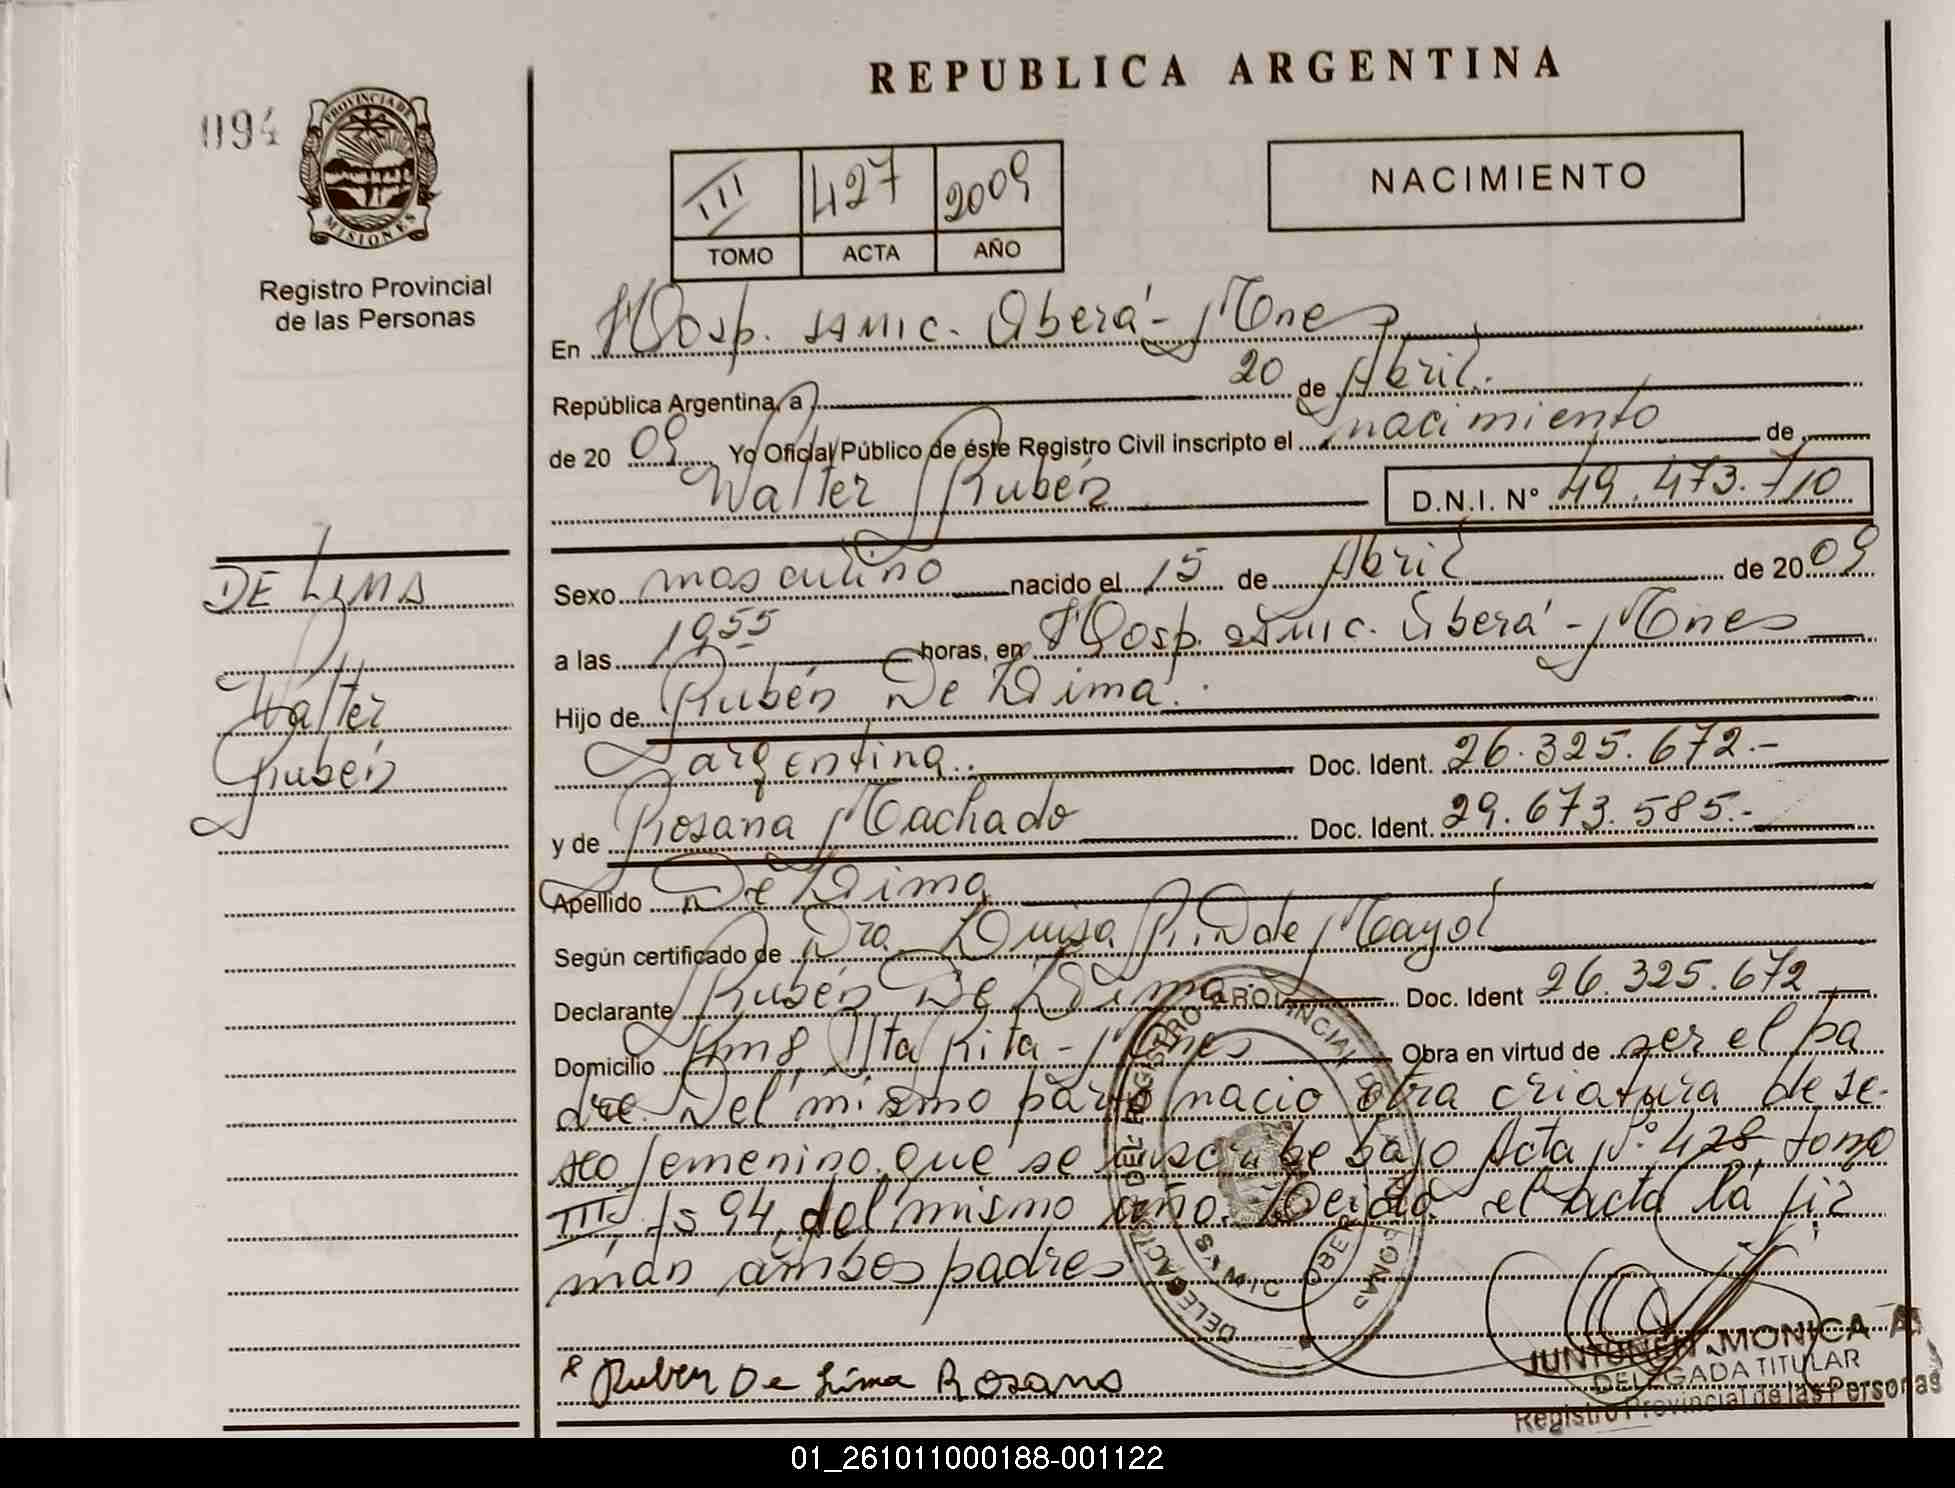 REPUBLICA ARGENTINA
094
PROVINCIA DE
MISIONES
Registro Provincial
de las Personas
III 427 2009
TOMO ACTA AÑO
NACIMIENTO
En Hosp. SAMIC. Oberá - Mnes
República Argentina, a 20 de Abril.
de 2009 Yo Oficial Público de éste Registro Civil inscripto el nacimiento de
Walter Rubén D.N.I. N° 49.473.710
DE LIMA
Walter
Rubén
Sexo masculino nacido el 15 de Abril de 2009
a las 1955 horas, en Hosp. SAMIC. Oberá - Mnes
Hijo de Rubén De Lima.
argentina. Doc. Ident. 26.325.672.-
y de Rosana Machado Doc. Ident. 29.673.585.-
Apellido De Lima
Según certificado de Dra. Luisa de Mayol
Declarante Rubén De Lima Doc. Ident 26.325.672
Domicilio Km 8, Sta Rita - Mnes Obra en virtud de ser el pa
dre. Del mismo parto nacio otra criatura de se-
xo femenino que se inscribe bajo Acta N° 428, tomo
III, fs 94, del mismo año. Leida el acta la fir
man ambos padres
DELEGACION DEL REGISTRO PROVINCIAL DE LAS PERSONAS
SAMIC OBERA
Ruben De Lima Rosana
JUNTUNEN MONICA A.
DELEGADA TITULAR
Registro Provincial de las Personas
01_261011000188-001122